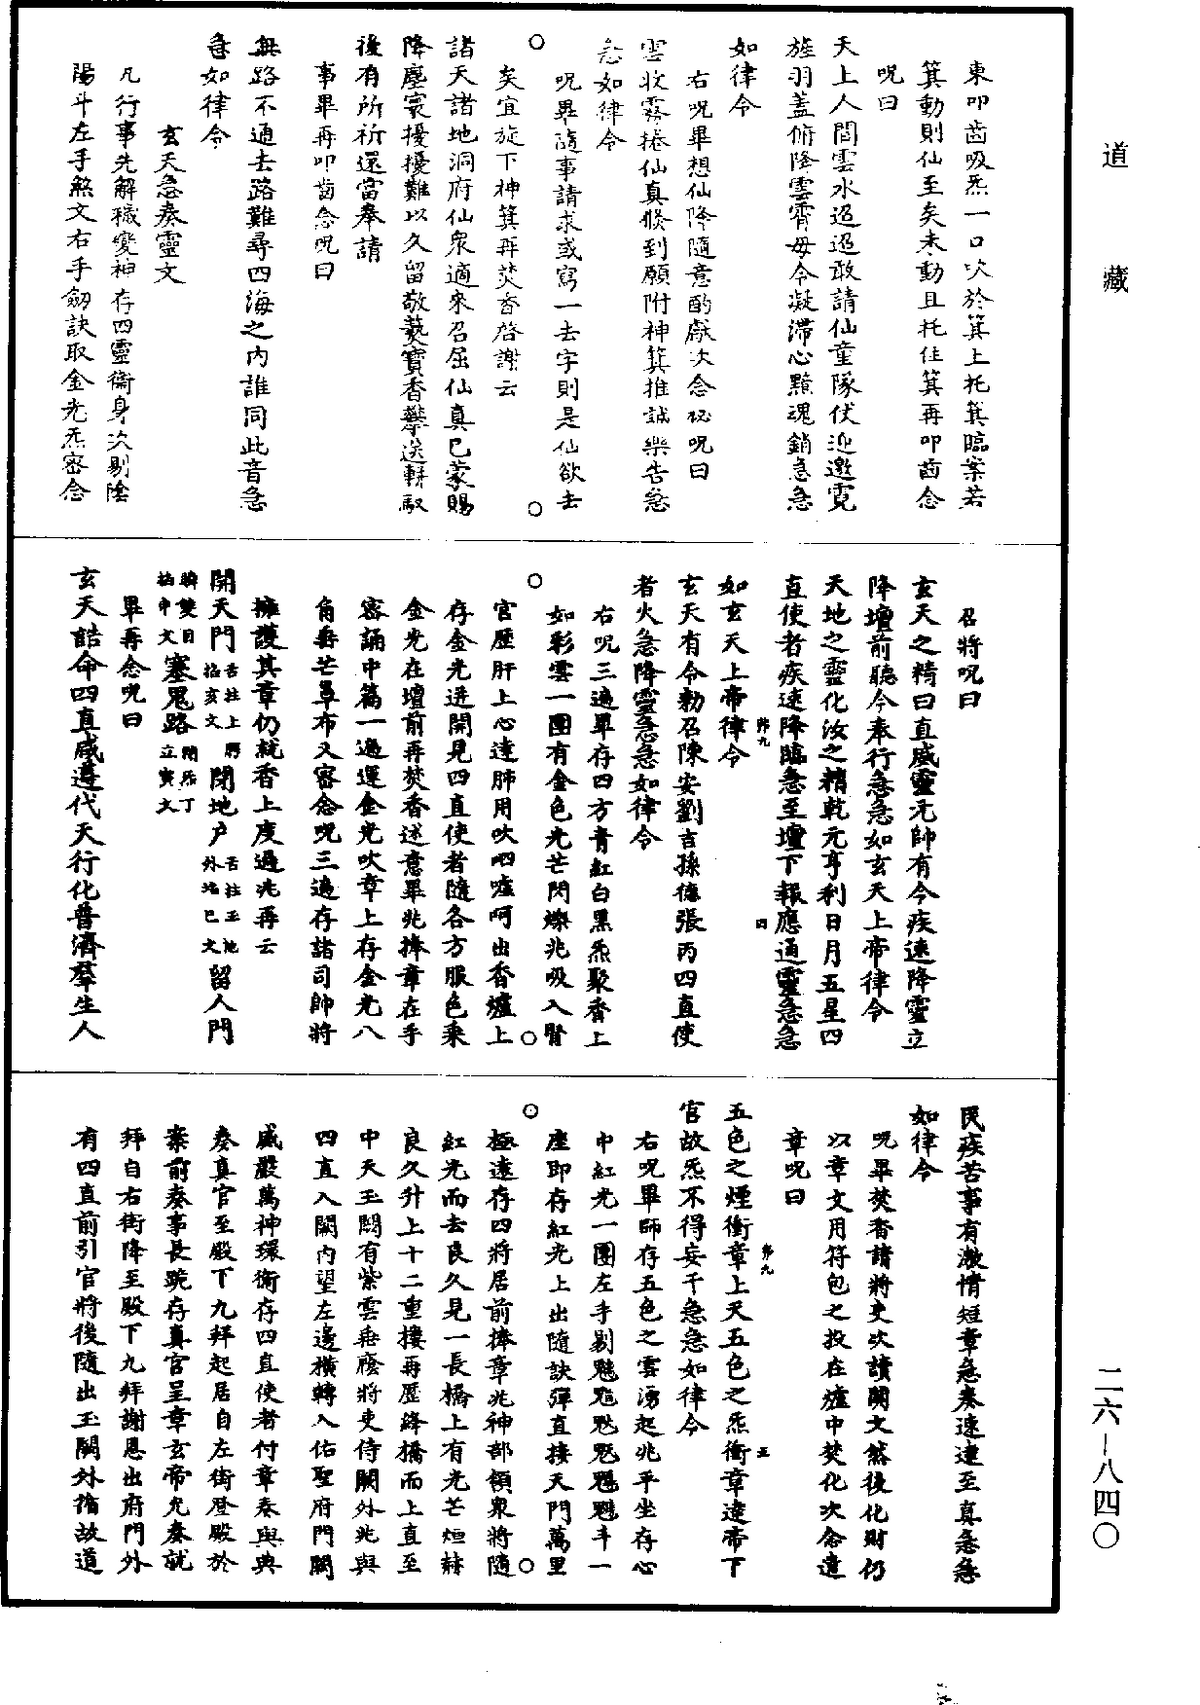 道藏
東叩齒吸炁一口吹於箕上托箕臨案若
箕動則仙至矣未動且托住箕再叩齒念
呪曰
天上人間雲水迢迢敢請仙童隊伏迎邀霓
旌羽蓋俯降雲霄毋令凝滯心黯魂銷急急
如律令
右呪畢想仙降隨意酌獻次念祕呪曰
雲收霧捲仙真倏到願附神箕推誠樂告急
急如律令
呪畢隨事請求或寫一去字則是仙欲去
矣宜旋下神箕再焚香啓謝云
諸天諸地洞府仙衆適來召屈仙真已蒙賜
降塵寰擾擾難以久留敬爇寶香攀送軿馭
後有所祈還當奉請
事畢再叩齒念呪曰
無路不通去路難尋四海之內誰同此音急
急如律令
玄天急奏靈文
凡行事先解穢變神存四靈衞身次剔陰
陽斗左手煞文右手劒訣取金光炁密念
召將呪曰
玄天之精曰直威靈元帥有令疾速降靈立
降壇前聽令奉行急急如玄天上帝律令
天地之靈化汝之精乾元亨利日月五星四
直使者疾速降臨急至壇下報應通靈急急
如玄天上帝律令
玄天有令勑召陳安劉吉孫德張丙四直使
者火急降靈急急如律令
右呪三遍畢存四方青紅白黑炁聚香上
如彩雲一團有金色光芒閃爍兆吸入腎
宮歷肝上心達肺用吹呬噓呵出香爐上
存金光迸開見四直使者隨各方服色乘
金光在壇前再焚香述意畢兆捧章在手
密誦中篇一遍運金光吹章上存金光八
角垂芒罩布又密念呪三遍存諸司帥將
擁護其章仍就香上度過兆再云
開天門舌拄上腭掐亥文閉地户舌拄玉地外掐巳文留人門
瞬雙目掐申文塞鬼路閉炁丁立寅文
畢再念呪曰
玄天誥命四直威遵代天行化普濟羣生人
民疾苦事有激情短章急奏速達至真急急
如律令
呪畢焚香請將吏次讀關文然後化財仍
以章文用符包之投在爐中焚化次念遣
章呪曰
五色之煙衝章上天五色之炁衝章達帝下
官故炁不得妄干急急如律令
右呪畢師存五色之雲湧起兆平坐存心
中紅光一團左手剔魁𩲃䰢魓魒魕斗一
座即存紅光上出隨訣彈直接天門萬里
極遠存四將居前捧章兆神部領衆將隨
紅光而去良久見一長橋上有光芒烜赫
良久升上十二重樓再歷絳橋而上直至
中天玉闕有紫雲垂廕將吏侍關外兆與
四直入闕內望左邊橫轉入佑聖府門闕
威嚴萬神環衞存四直使者付章奏與典
奏真官至殿下九拜起居自左街登殿於
案前奏事長跪存真官呈章玄帝允奏就
拜自右街降至殿下九拜謝恩出府門外
有四直前引官將後隨出玉闕外循故道
第九
四
第九
五
二六－八四〇